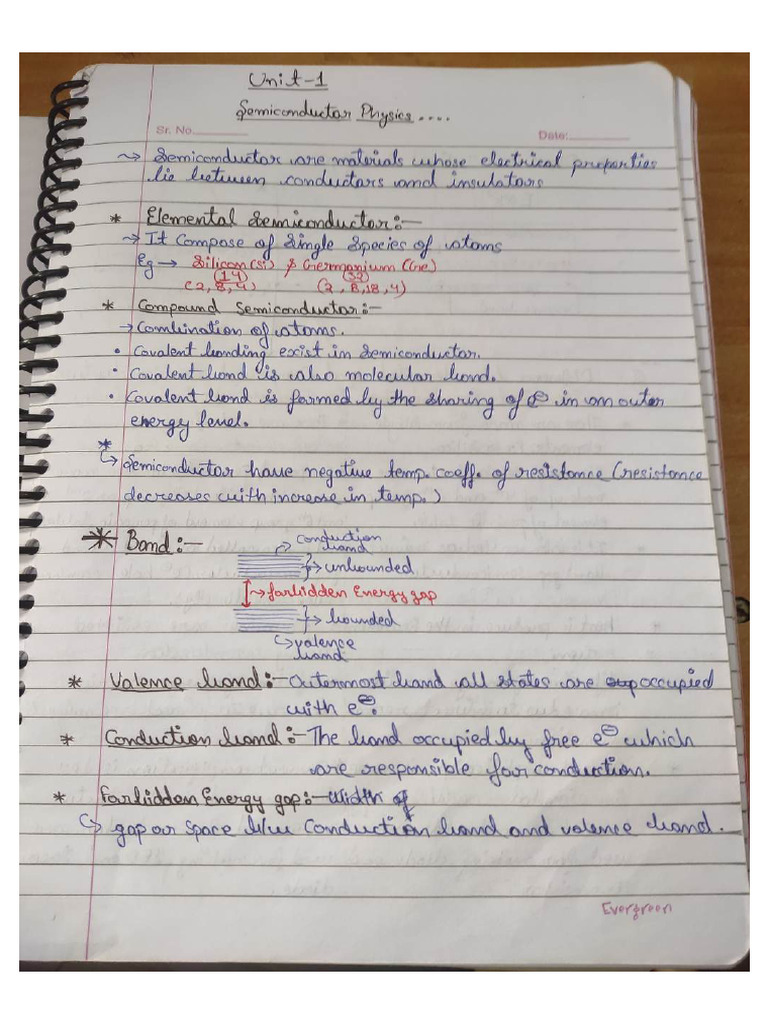 Unit-1
Semiconductor Physics....
Sr. No.
Date:
~> Semiconductor are materials whose electrical properties
lie between conductors and insulators
* Elemental Semiconductor:-
→ It compose of single species of atoms
Eg → Silicon(Si) & Germanium (Ge)
(14) (32)
(2,8,4) (2,8,18,4)
* Compound Semiconductor:-
→ Combination of atoms.
• Covalent bonding exist in semiconductor.
• Covalent bond is also molecular bond.
• Covalent bond is formed by the sharing of e⊖ in an outer
energy level.
*
↳ Semiconductor have negative temp. coeff. of resistance (resistance
decreases with increase in temp.)
* Band:-
conduction
band
→ unbounded
→ forbidden Energy gap
→ bounded
valence
band
* Valence band:- Outermost band all states are occupied
with e⊖.
* Conduction band:- The band occupied by free e⊖ which
are responsible for conduction.
* Forbidden Energy gap:- Width of
↳ gap or space b/w Conduction band and valence band.
Evergreen